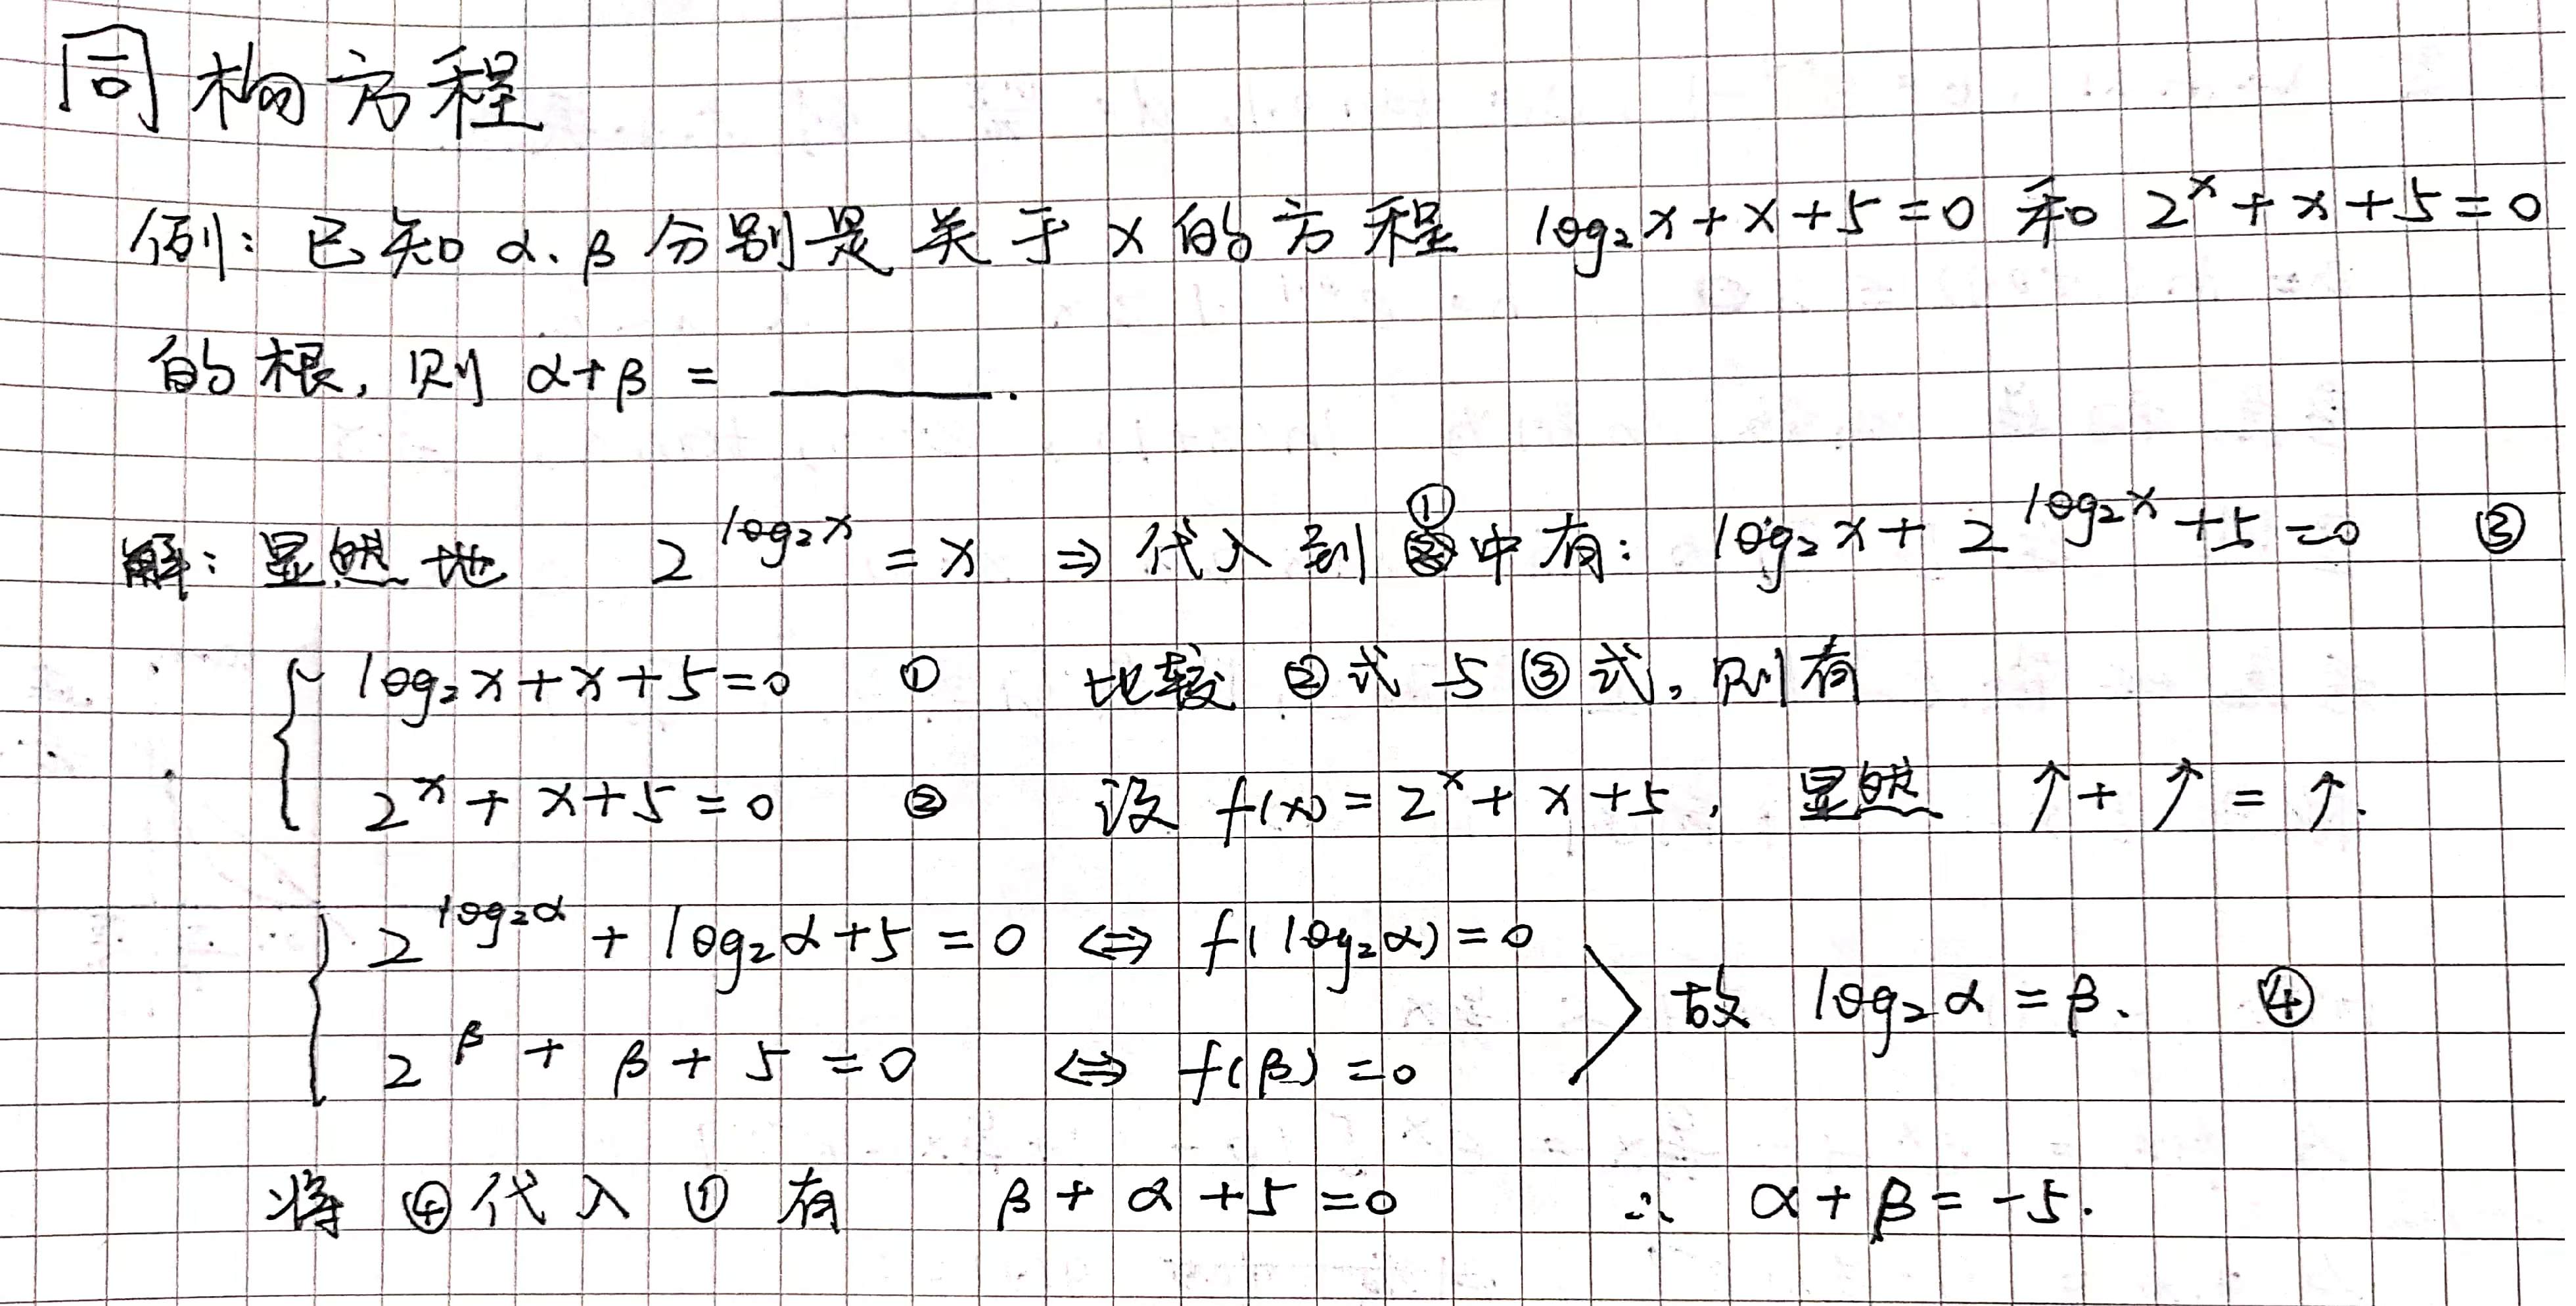 同构方程
例: 已知 α、β 分别是关于 x 的方程 log₂x + x + 5 = 0 和 2^x + x + 5 = 0
的根, 则 α+β = ______.
解: 显然地 2^(log₂x) = x ⇒ 代入到 ① 中有: log₂x + 2^(log₂x) + 5 = 0 ③
log₂x + x + 5 = 0 ① 比较 ②式与③式, 则有
2^x + x + 5 = 0 ② 设 f(x) = 2^x + x + 5, 显然 ↑ + ↑ = ↑.
2^(log₂α) + log₂α + 5 = 0 ⇔ f(log₂α) = 0
故 log₂α = β. ④
2^β + β + 5 = 0 ⇔ f(β) = 0
将 ④ 代入 ① 有 β + α + 5 = 0 ∴ α + β = -5.